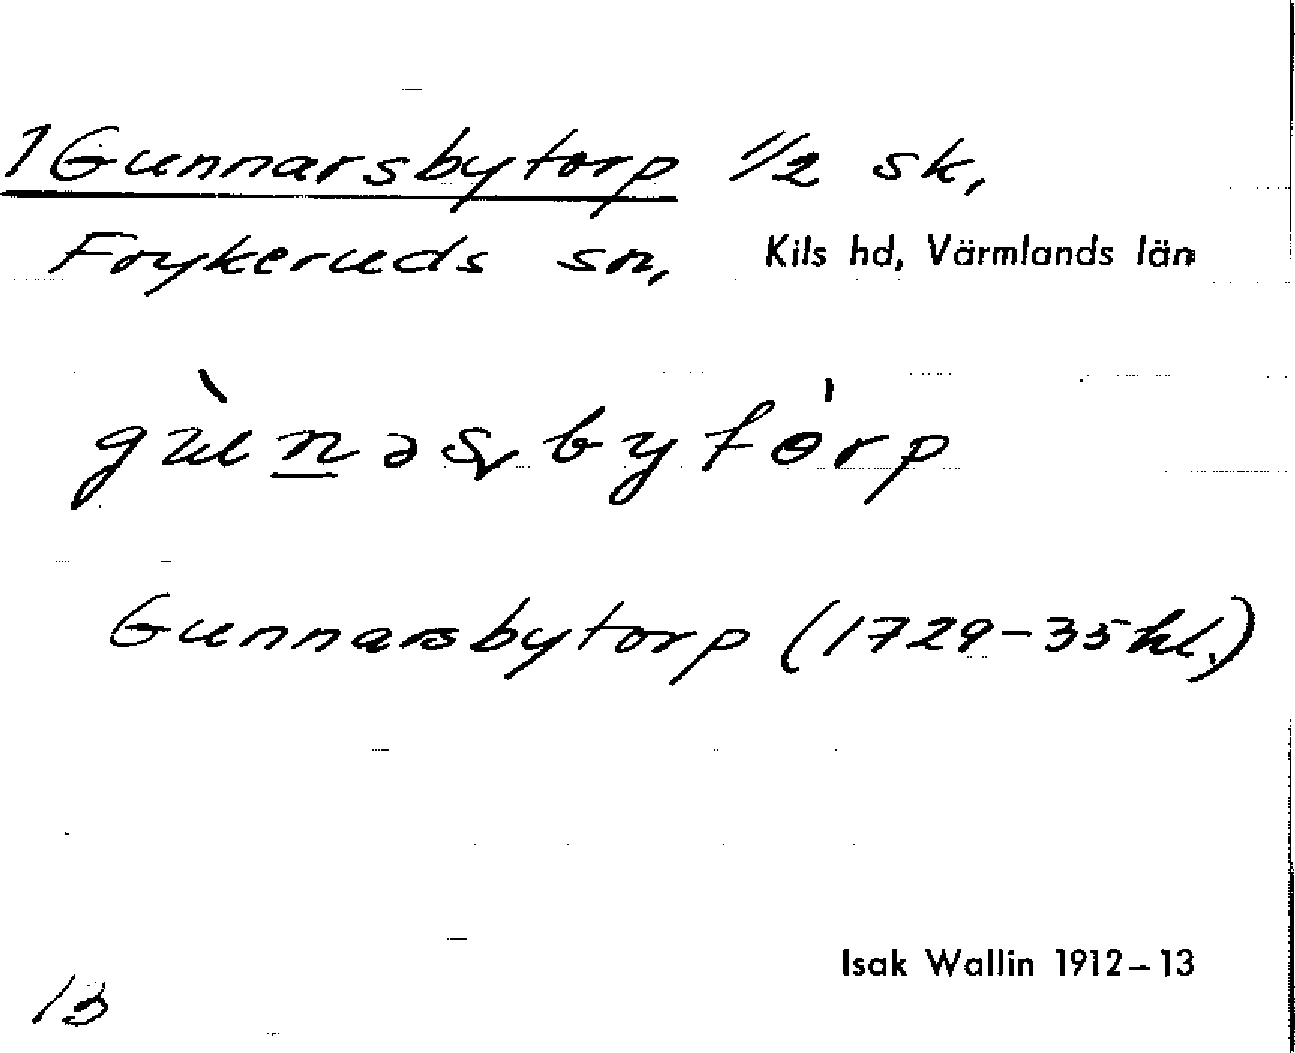 1 Gunnarsbytorp 1/2 sk,
Frykeruds sn, Kils hd, Värmlands län
gùn̲əsbytòrp
Gunnarsbytorp (1729-35 hl.)
Isak Wallin 1912–13
13